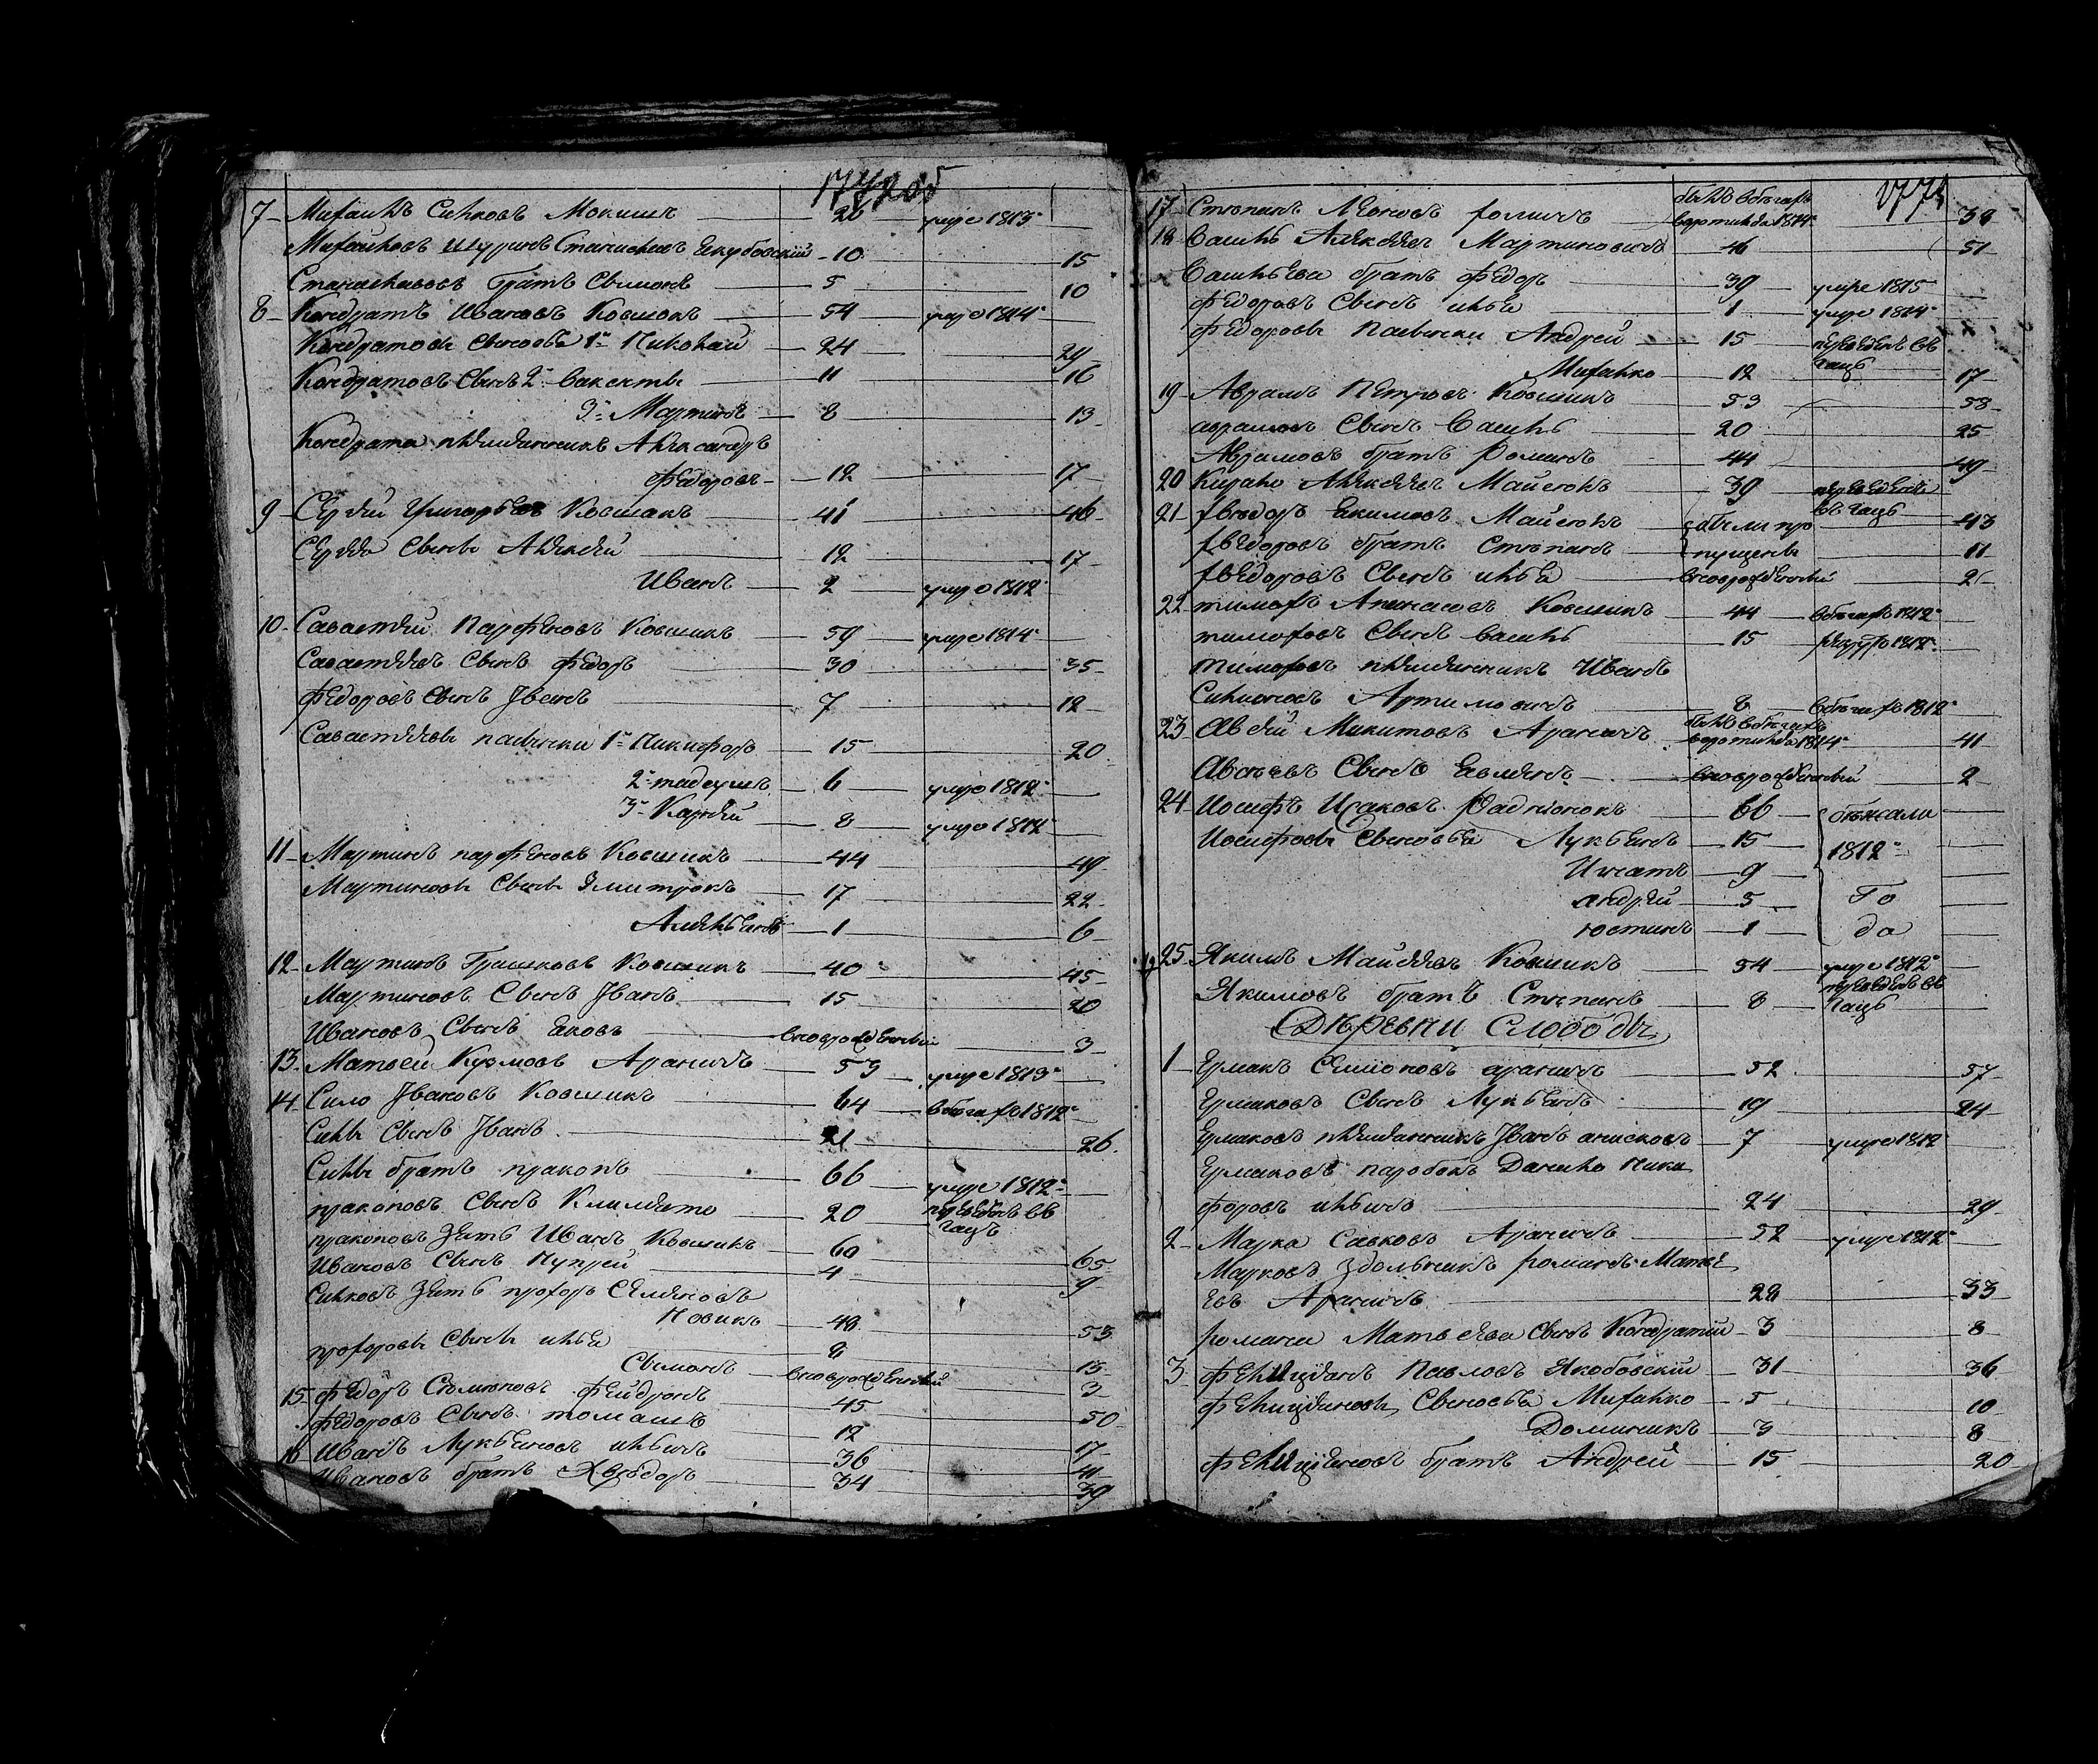 7 Михаилъ Сильковъ Мокишъ 26 умре 1813
Михайловъ шуринъ Станиславъ Екубовский 10 15
Станиславовъ братъ Свимонъ 5 10
8 Кондратъ Ивановъ Ковшикъ 54 умре 1814
Кондратовы Сыновья 1 Николай 24 29
Кондратовъ Сынъ 2 Вакенты 11 16
3 Мартинъ 8 13
Кондрата племянникъ Александръ
Федоровъ 12 17
9 Сергей Григорьевъ Ковшикъ 41 46
Сергея Сыны Алексей 12 17
Иванъ 2 умре 1812
10 Савастей Парфеновъ Ковшикъ 59 умре 1814
Савастеевъ Сынъ Федоръ 30 35
Федоровъ Сынъ Иванъ 7 12
Савастеевы пасынки 1 Никифоръ 15 20
2 тадеушъ 6 умре 1812
3 Карней 8 умре 1812
11 Мартинъ парфеновъ Ковшикъ 44 49
Мартиновы Сыны Змитрокъ 17 22
Амельянъ 1 6
12 Мартинъ Гришковъ Ковшикъ 40 45
Мартиновъ Сынъ Иванъ 15 20
Ивановъ Сынъ Яковъ вновророжденный 3
13 Матвей Кузмовъ Араничъ 53 умре 1813
14 Сило Ивановъ Ковшикъ 64 вбегахъ 1812
Силы Сынъ Иванъ 21 26
Силы братъ пракопъ 66 умре 1812
пракоповъ Сынъ Климента 20 переведенъ въ
Гацъ
пракоповъ Зять Иванъ Ковшикъ 60 65
Ивановъ Сынъ Купрей 4 9
Сильковъ Зять прохоръ Семеновъ
Новикъ 48 53
прохоровы Сыны илья 8 13
Свимонъ вновророжденный 3
15 Федоръ Самионовъ Фейдронъ 45 50
Федоровъ Сынъ томашъ 12 17
16 Иванъ Лукьяновъ ильичъ 36 41
Ивановъ братъ Хведоръ 34 39
17 Степанъ Леоновъ былъ вбегахъ
воротился 1814 38
18 Василь Алексеевъ Мартиновичъ 46 51
Васильева братъ Федоръ 39 умре 1815
Федоровъ Сынъ илья 1 умре 1814
Федоровы Пасынки Андрей 15 переведенъ въ
Гацъ
Михалко 12 17
19 Аврамъ Петровъ Ковшикъ 53 58
аврамовъ Сынъ Василь 20 25
Аврамовъ братъ Романъ 44 49
20 Кирило Алексеевъ Майсюкъ 39 переведенъ
въ Гацъ
21 Хведоръ Екимовъ Майсюкъ были про 43
Хведоровъ братъ Степанъ пущены 11
Хведоровъ Сынъ илья вновророжденный 2
22 тимохъ Апанасовъ Ковшикъ 44 вбегахъ 1812
тимоховъ Сынъ василь 15 рекрутъ 1812
тимоховъ племянникъ Иванъ
Артимовичъ 8 вбегахъ 1812
23 Авсей Микитовъ Араничъ былъ вбегахъ
воротился 1814 41
Авсеевъ Сынъ вновророжденный 2
24 Иосифъ Исаковъ Радзионокъ 66 бежали
Иосифовы Сыновья Лукьянъ 15 1812
Игнатъ 9
андрей 5 Го
юстинъ 1 да
25 Якимъ Майсеевъ Ковшикъ 54 умре 1812
Якимовъ братъ Степанъ 8 переведенъ въ
Гацъ
Деревни Слободы
1 Ермакъ Семионовъ араничъ 52 57
Ермаковъ Сынъ Лукьянъ 19 24
Ермаковъ племянникъ Иванъ анисковъ 7 умре 1812
Ермаковъ паробокъ Данило Ники
форовъ ильичъ 24 29
2 Марка Савковъ Араничъ 52 умре 1812
Марковъ здольникъ романъ Матве
евъ Араничъ 28 33
романа Матвеева Сынъ Кондратий 3 8
3 Фелициянъ Павловъ Якобовский 31 36
Фелицияновы Сыновья Михалко 5 10
Доминикъ 3 8
Фелицияновъ братъ Андрей 15 20